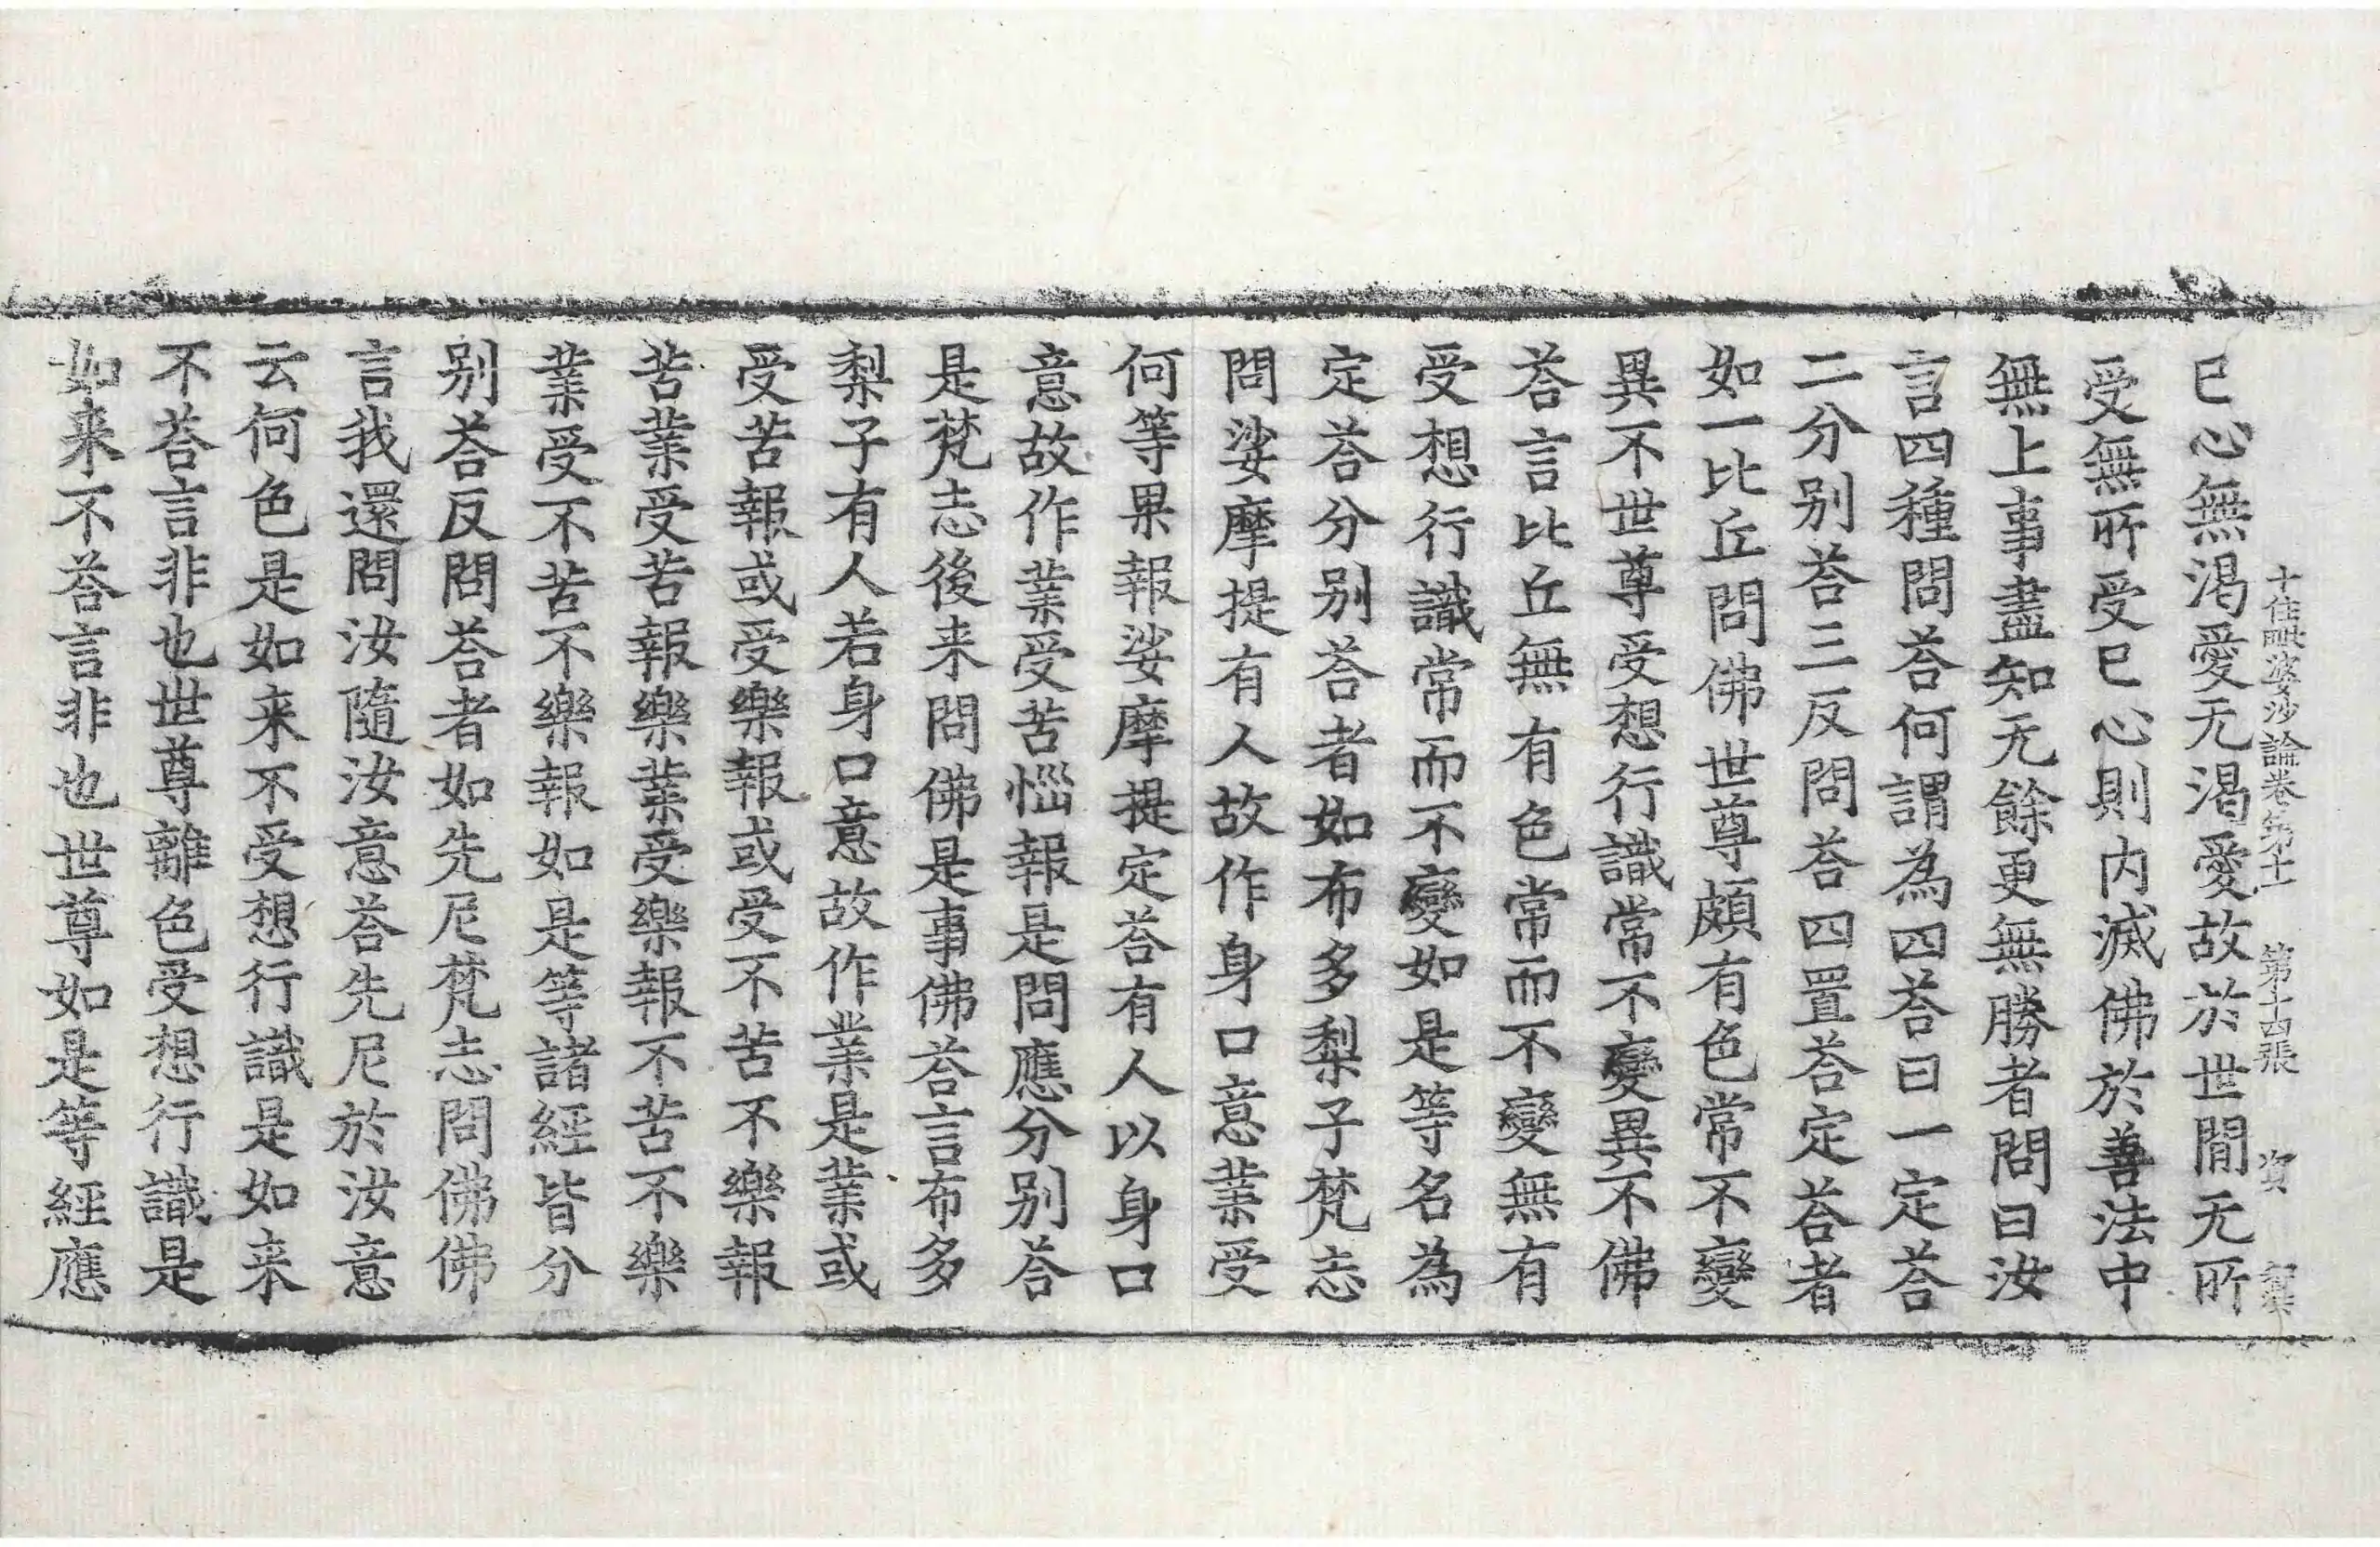 十住毗婆沙論卷第十一　第十四張　資
已心無渴愛无渴愛故於世間无所
受無所受已心則内滅佛於善法中
無上事盡知无餘更無勝者問曰汝
言四種問荅何謂為四荅曰一定荅
二分别荅三反問荅四置荅定荅者
如一比丘問佛世尊頗有色常不變
異不世尊受想行識常不變異不佛
荅言比丘無有色常而不變無有
受想行識常而不變如是等名為
定荅分别荅者如布多梨子梵志
問娑摩提有人故作身口意業受
何等果報娑摩提定荅有人以身口
意故作業受苦惱報是問應分别荅
是梵志後来問佛是事佛荅言布多
梨子有人若身口意故作業是業或
受苦報或受樂報或受不苦不樂報
苦業受苦報樂業受樂報不苦不樂
業受不苦不樂報如是等諸經皆分
别荅反問荅者如先尼梵志問佛佛
言我還問汝隨汝意荅先尼於汝意
云何色是如来不受想行識是如来
不荅言非也世尊離色受想行識是
如来不荅言非也世尊如是等經應